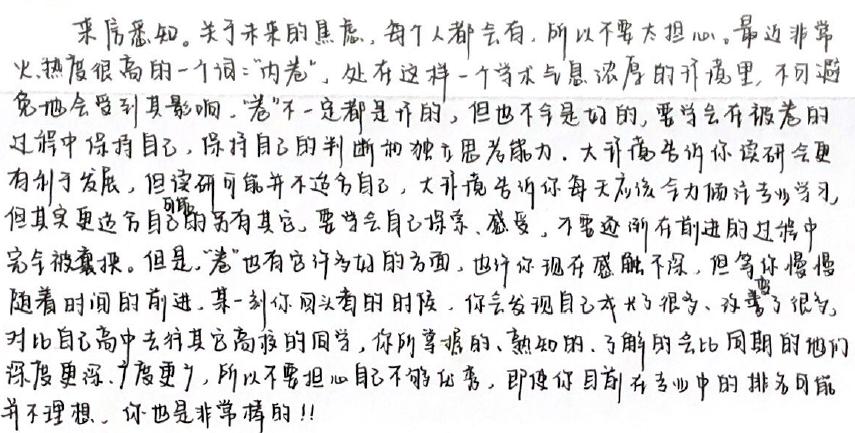 来信悉知。关于未来的焦虑，每个人都会有，所以不要太担心。最近非常
火、热度很高的一个词："内卷"，处在这样一个学术气息浓厚的环境里，不可避
免地会受到其影响，"卷"不一定都是坏的，但也不全是好的，要学会在被卷的
过程中保持自己，保持自己的判断和独立思考能力。大环境告诉你读研会更
有利于发展，但读研可能并不适合自己，大环境告诉你每天应该全力倾注专业学习，
但其实更适合自己的可能另有其它，要学会自己探索、感受，不要逐渐在前进的过程中
完全被裹挟。但是，"卷"也有它许多好的方面，也许你现在感触不深，但等你慢慢
随着时间的前进，某一刻你回头看的时候，你会发现自己成长了很多、改变了很多，
对比自己高中去往其它高校的同学，你所掌握的、熟知的、了解的会比同期的他们
深度更深、广度更广，所以不要担心自己不够优秀，即使你目前在专业中的排名可能
并不理想，你也是非常棒的！！